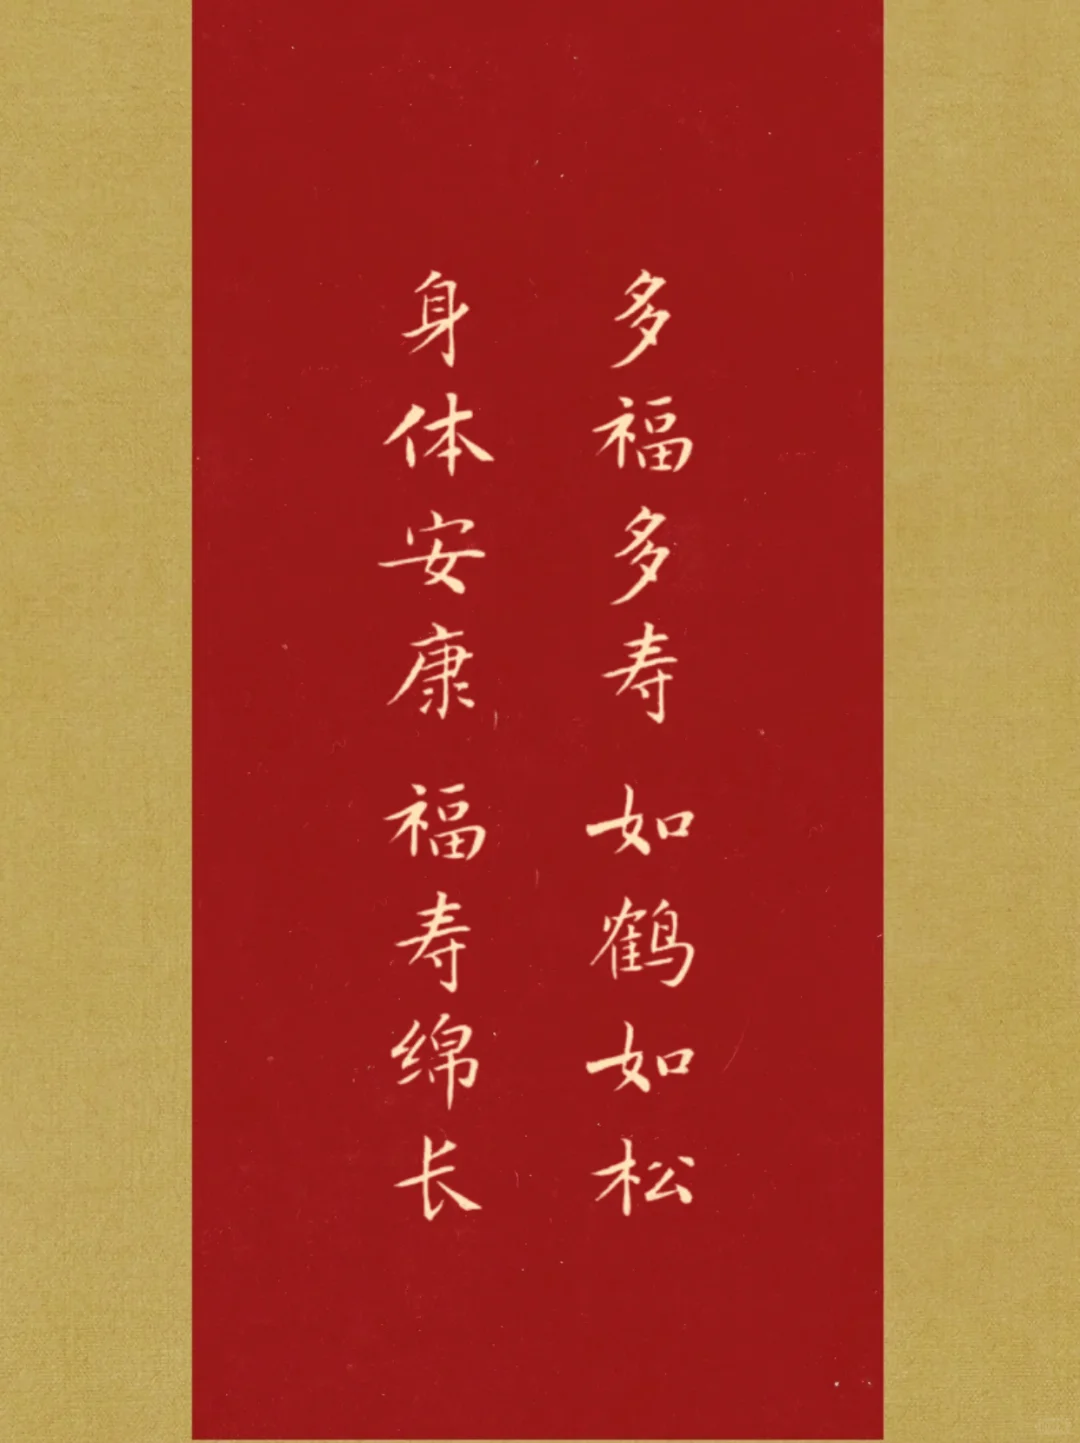 多福多寿 如鹤如松
身体安康 福寿绵长